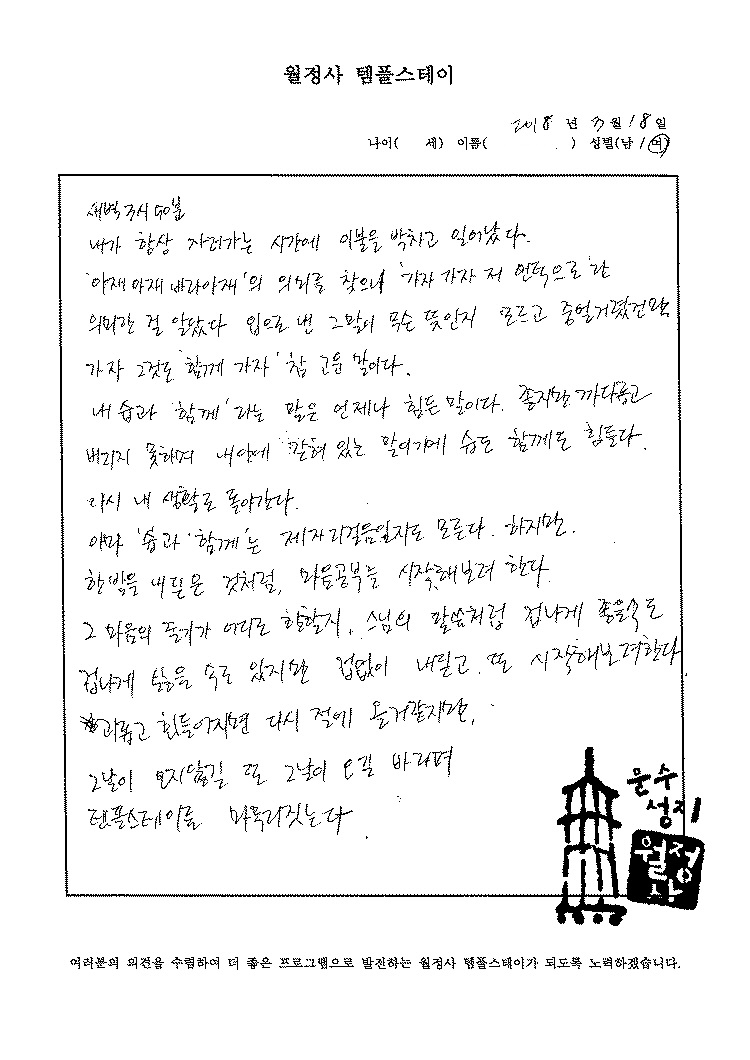 월정사 템플스테이
2018 년 3월 18일
나이( 세) 이름( ) 성별(남/여)
새벽 3시 50분
내가 항상 자러가는 시간에 이불을 박차고 일어났다.
'아제아제 바라아제'의 의미를 찾으니 '가자 가자 저 언덕으로'란
의미란 걸 알았다 입으로 낸 그말이 무슨 뜻인지 모르고 중얼거렸건만
가자 그것도 '함께 가자' 참 고운 말이다.
내 숨과 '함께'라는 말은 언제나 힘든 말이다. 좋지만 까다롭고
버리지 못하며 내안에 갇혀 있는 말이기에 숨도 함께도 힘들다.
다시 내 생활로 돌아간다.
아마 '숨과 함께'는 제자리걸음일지도 모른다. 하지만.
한발을 내딛은 것처럼, 마음공부를 시작해보려 한다.
그 마음의 줄기가 어디로 향할지, 스님의 말씀처럼 겁나게 좋을수도
겁나게 싫을 수도 있지만 겁없이 내딛고 또 시작해보려한다
괴롭고 힘들어지면 다시 절에 올거같지만,
그날이 오지않길 또 그날이 오길 바라며
템플스테이를 마무리짓는다.
문수
성지
월정사
여러분의 의견을 수렴하여 더 좋은 프로그램으로 발전하는 월정사 템플스테이가 되도록 노력하겠습니다.